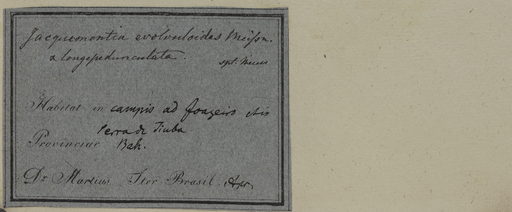 Jacquemontia evolvuloides Meissn.
α longepedunculata.
Habitat in campis ad Joazeiro
Serra de Tiuba
Provinciae Bah.
Dr. Martius Iter Brasil.